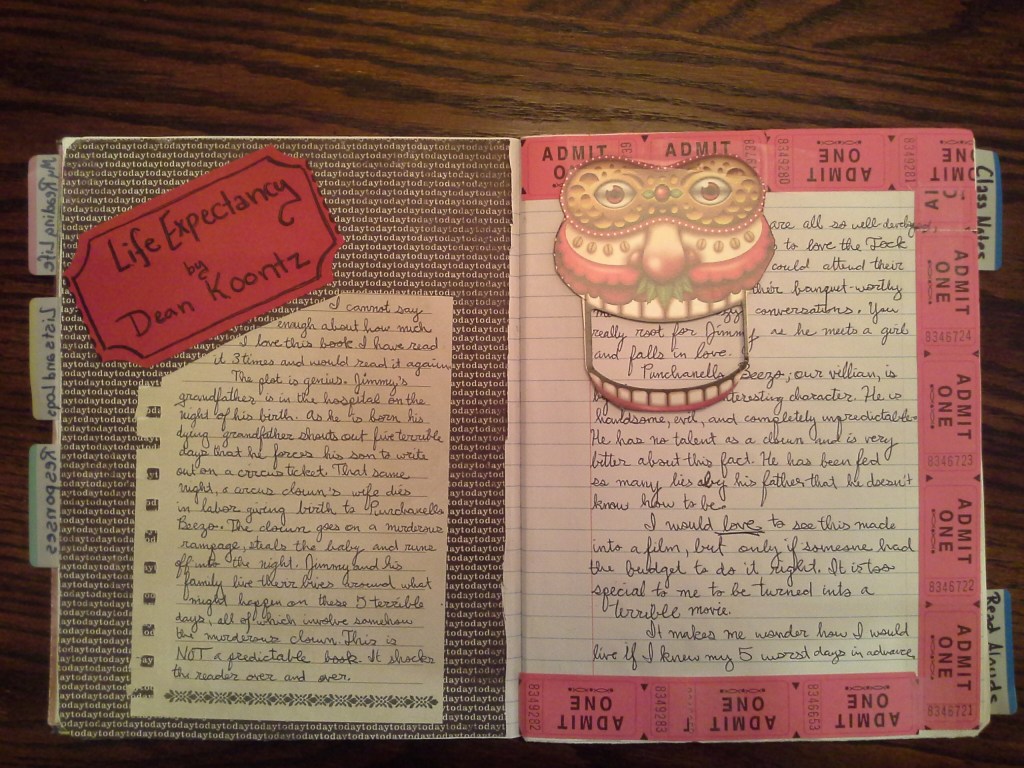 My Reading Life
Lists and Logs
Responses
Life Expectancy
by
Dean Koontz
I cannot say
enough about how much
I love this book. I have read
it 3 times and would read it again.
The plot is genius. Jimmy's
grandfather is in the hospital on the
night of his birth. As he is born his
dying grandfather shouts out five terrible
days that he forces his son to write
out on a circus ticket. That same
night, a circus clown's wife dies
in labor giving birth to Punchanello
Beezo. The clown goes on a murderous
rampage, steals the baby and runs
off into the night. Jimmy and his
family live their lives around what
might happen on these 5 terrible
days, all of which involve somehow
the murderous clown. This is
NOT a predictable book. It shocks
the reader over and over.
ADMIT
ADMIT
ADMIT ONE
8349280
ADMIT ONE
8349281
ONE
are all so well-develop
s to love the Tock
could attend their
their banquet-worthy
conversations. You
really root for Jimmy as he meets a girl
and falls in love.
Punchanello Beezo, our villian, is
interesting character. He is
handsome, evil, and completely unpredictable.
He has no talent as a clown and is very
bitter about this fact. He has been fed
so many lies by his father that he doesn't
know how to be.
I would love to see this made
into a film, but only if someone had
the budget to do it right. It is too
special to me to be turned into a
terrible movie.
It makes me wonder how I would
live if I knew my 5 worst days in advance.
ADMIT ONE
8346724
ADMIT ONE
8346723
ADMIT ONE
8346722
ADMIT ONE
8346721
8349282
ADMIT ONE
8349283
ADMIT ONE
8346653
ADMIT ONE
Class Notes
Read Alouds